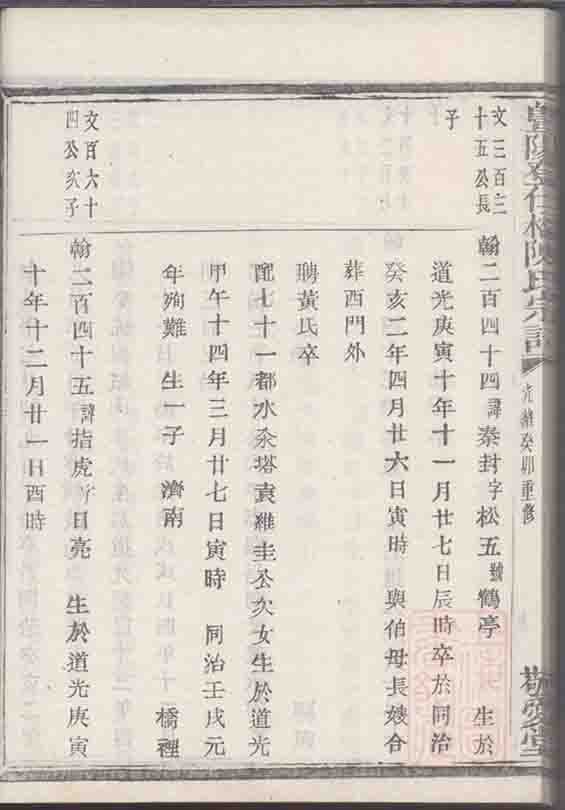 暨陽
陳氏宗譜
光緒癸卯重修
敬愛堂
文三百三
十五公長
子
翰二百四十四 諱秦封字松五號鶴亭 生於
道光庚寅十年十一月廿七日辰時卒於同治
癸亥二年四月廿六日寅時 與伯母長嫂合
葬西門外
聘黃氏卒
配七十一都水汆塔袁維圭公次女生於道光
甲午十四年三月廿七日寅時 同治壬戌元
年殉難 生一子 濟南 橋裡
文百六十
四公次子
翰二百四十五諱指虎字日亮 生於道光庚寅
十年十二月廿一日酉時